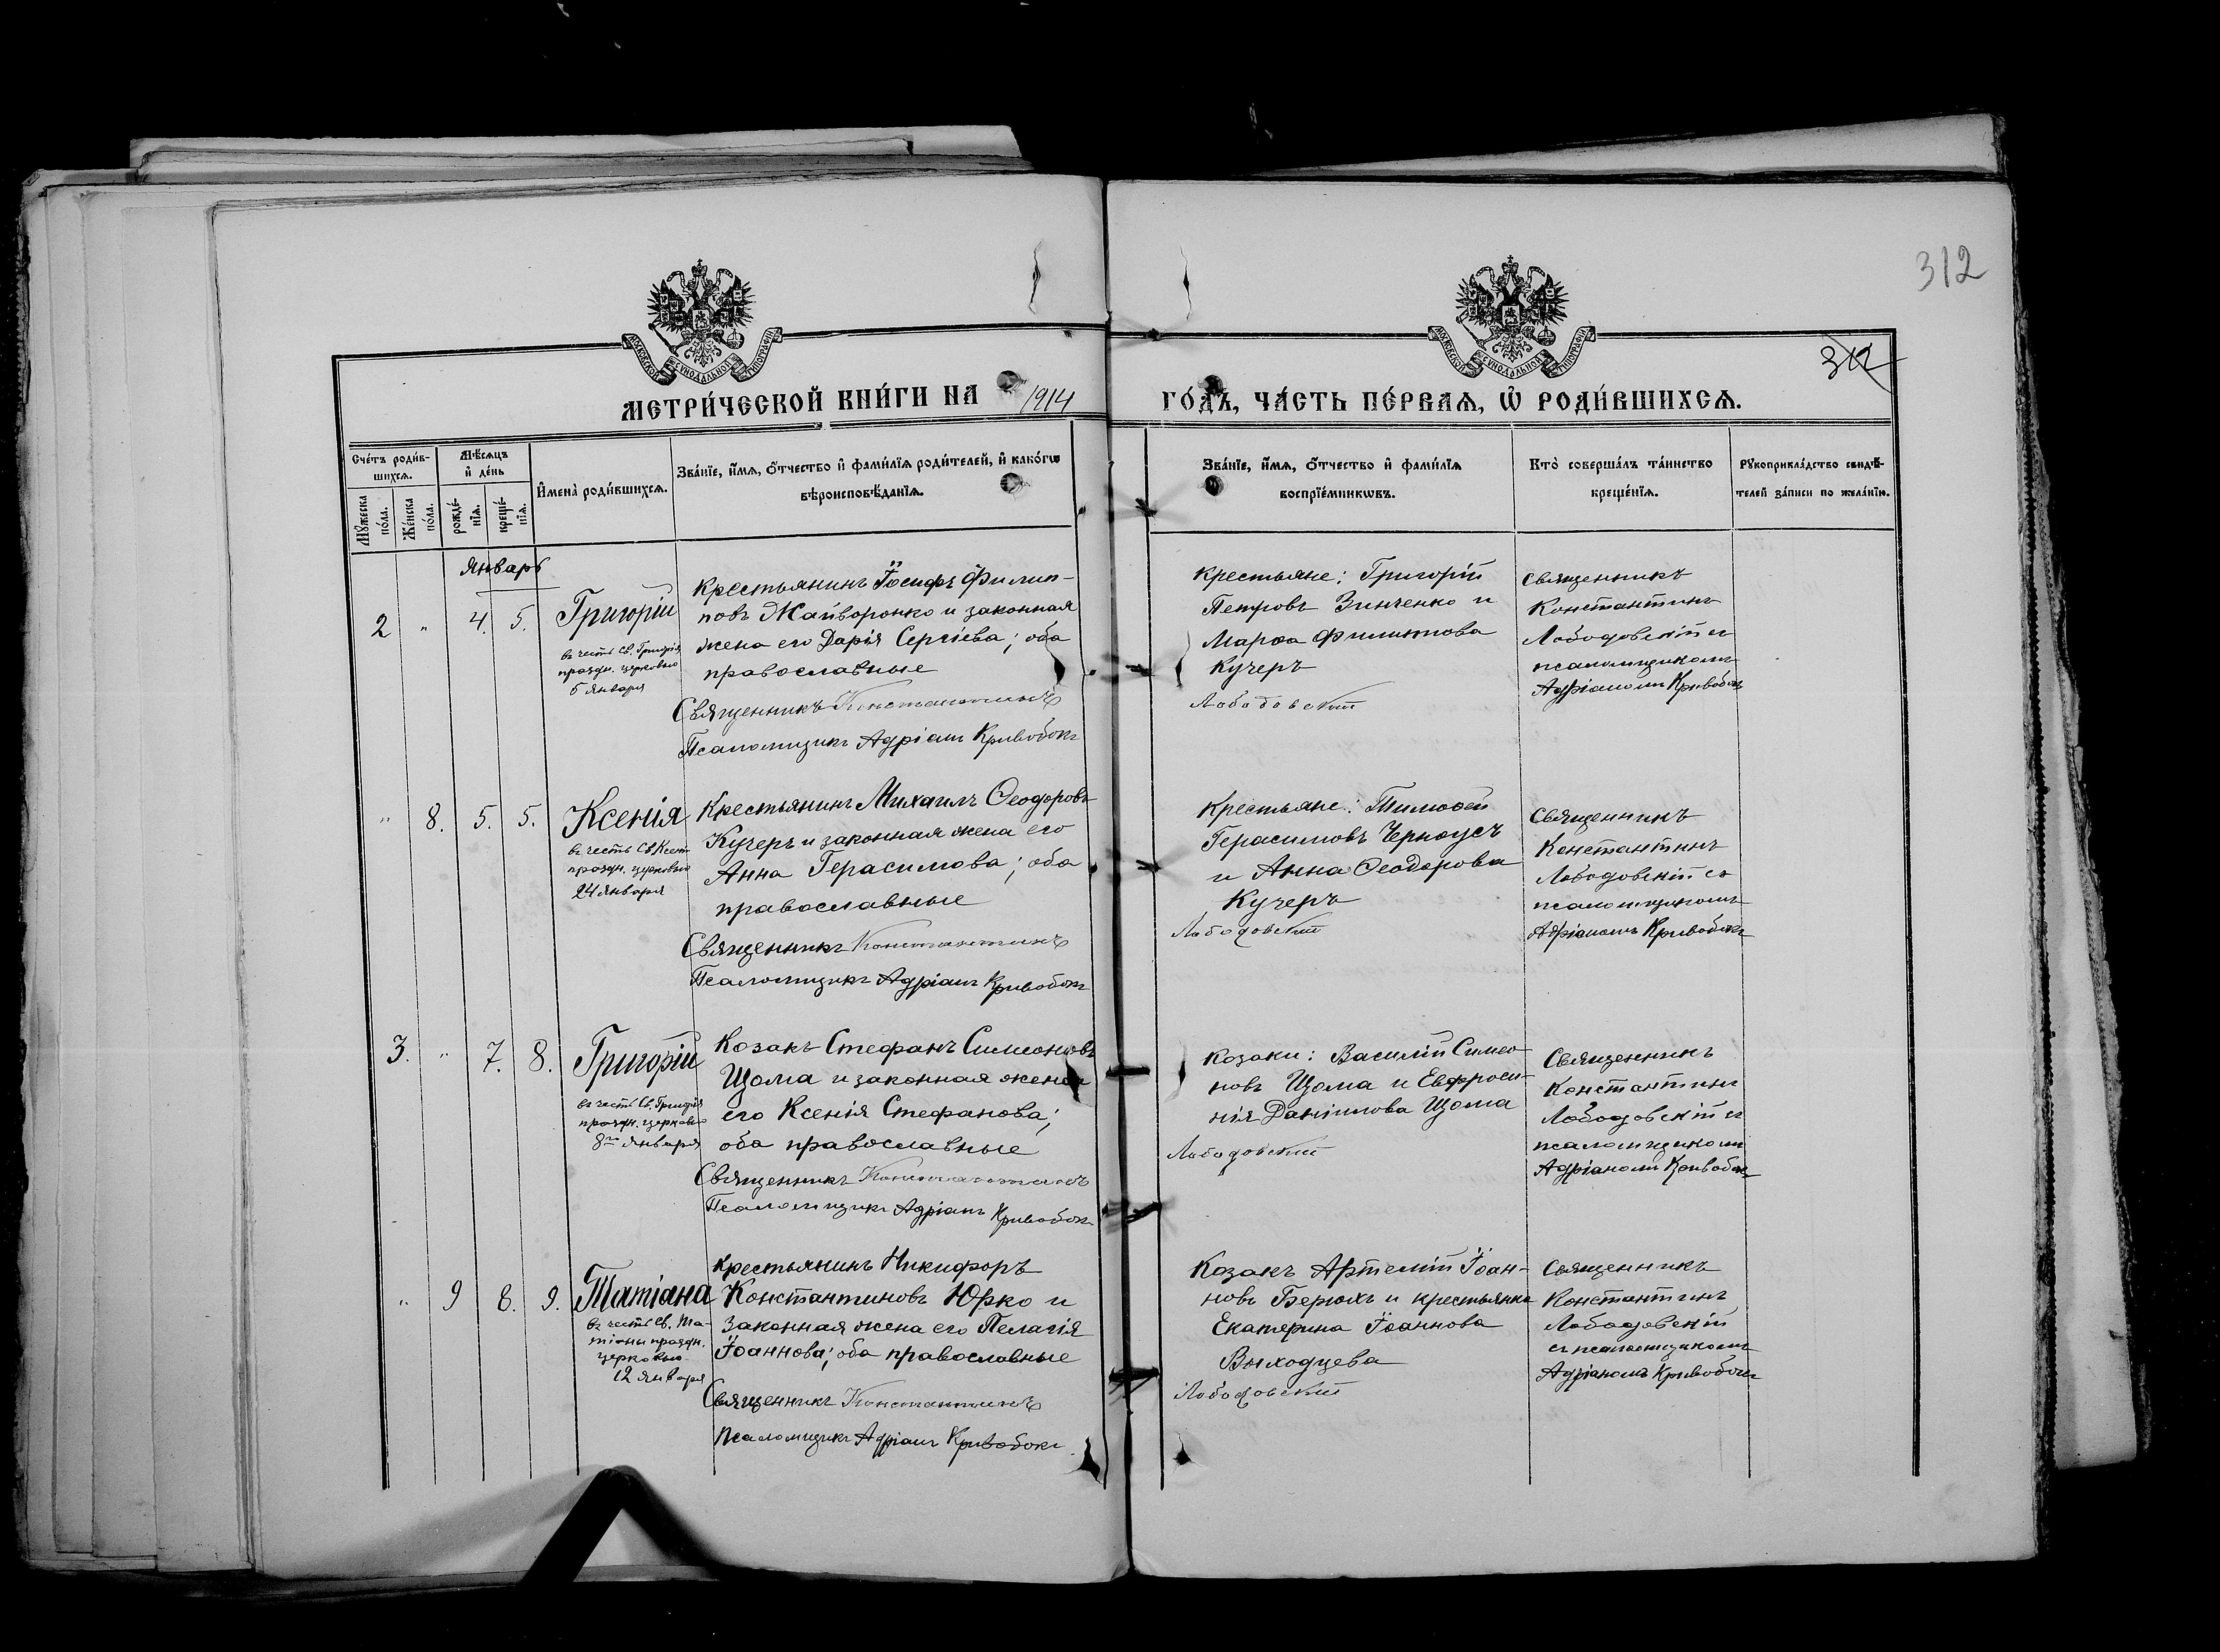 312
312
МОСКОВСКОЙ СѴНОДАЛЬНОЙ ТИПОГРАФІИ
МОСКОВСКОЙ СѴНОДАЛЬНОЙ ТИПОГРАФІИ
МЕТРИ́ЧЕСКОЙ КНИ́ГИ НА 1914 ГО́ДЪ, ЧА́СТЬ ПЕ́РВАѦ, Ѡ҆ РОДИ́ВШИХСѦ.
Сче́тъ роди́в-
шихсѧ.
Мꙋ́жеска
по́ла.
Же́нска
по́ла.
Мѣ́сѧцъ
и҆ де́нь
рожде́-
нїѧ.
креще́-
нїѧ.
И҆мена̀ роди́вшихсѧ.
Зва́нїе, и҆́мѧ, ѻ҆́тчество и҆ фами́лїѧ роди́телей, и҆ како́гѡ
вѣроисповѣ́данїѧ.
Зва́нїе, и҆́мѧ, ѻ҆́тчество и҆ фами́лїѧ
воспрїе́мникѡвъ.
Кто̀ соверша́лъ та́инство
креще́нїѧ.
Рꙋкоприкла́дство свидѣ́-
телей за́писи по жела́нїю.
Январь
2 " 4. 5.
Григорій
въ честь Св. Григорія
праздн. церковью
5 января
Крестьянинъ Іосифъ Филип-
повъ Жайворонко и законная
жена его Дарія Сергіева; оба
православные
Священникъ Константинъ
Псаломщикъ Адріанъ Кривобокъ
Крестьяне: Григорій
Петровъ Зинченко и
Марѳа Филиппова
Кучеръ
Лободовскій
Священникъ
Константинъ
Лободовскій съ
псаломщикомъ
Адріаномъ Кривобок
" 8. 5. 5.
Ксенія
въ честь Св. Ксеніи
праздн. церковью
24 января
Крестьянинъ Михаилъ Ѳеодоровъ
Кучеръ и законная жена его
Анна Герасимова; оба
православные
Священникъ Константинъ
Псаломщикъ Адріанъ Кривобокъ
Крестьяне: Тимоѳей
Герасимовъ Черноусъ
и Анна Ѳеодорова
Кучеръ
Лободовскій
Священникъ
Константинъ
Лободовскій съ
псаломщикомъ
Адріаномъ Кривобокъ
3. " 7. 8.
Григорій
въ честь Св. Григорія
праздн. церковью
8го января
Козакъ Стефанъ Симеоновъ
Щома и законная жена
его Ксенія Стефанова;
оба православные
Священникъ Константинъ
Псаломщикъ Адріанъ Кривобокъ
Козаки: Василій Симео-
новъ Щома и Евфроси-
нія Даніилова Щома
Лободовскій
Священникъ
Константинъ
Лободовскій съ
псаломщикомъ
Адріаномъ Кривобок
" 9 8. 9.
Татіана
въ честь Св. Та-
тіаны праздн.
церковью
12 января
Крестьянинъ Никифоръ
Константиновъ Юрко и
законная жена его Пелагія
Іоаннова; оба православные
Священникъ Константинъ
Псаломщикъ Адріанъ Кривобокъ
Козакъ Артемій Іоан-
новъ Берюхъ и крестьянка
Екатерина Іоаннова
Выходцева
Лободовскій
Священникъ
Константинъ
Лободовскій
съ псаломщикомъ
Адріаномъ Кривобокъ